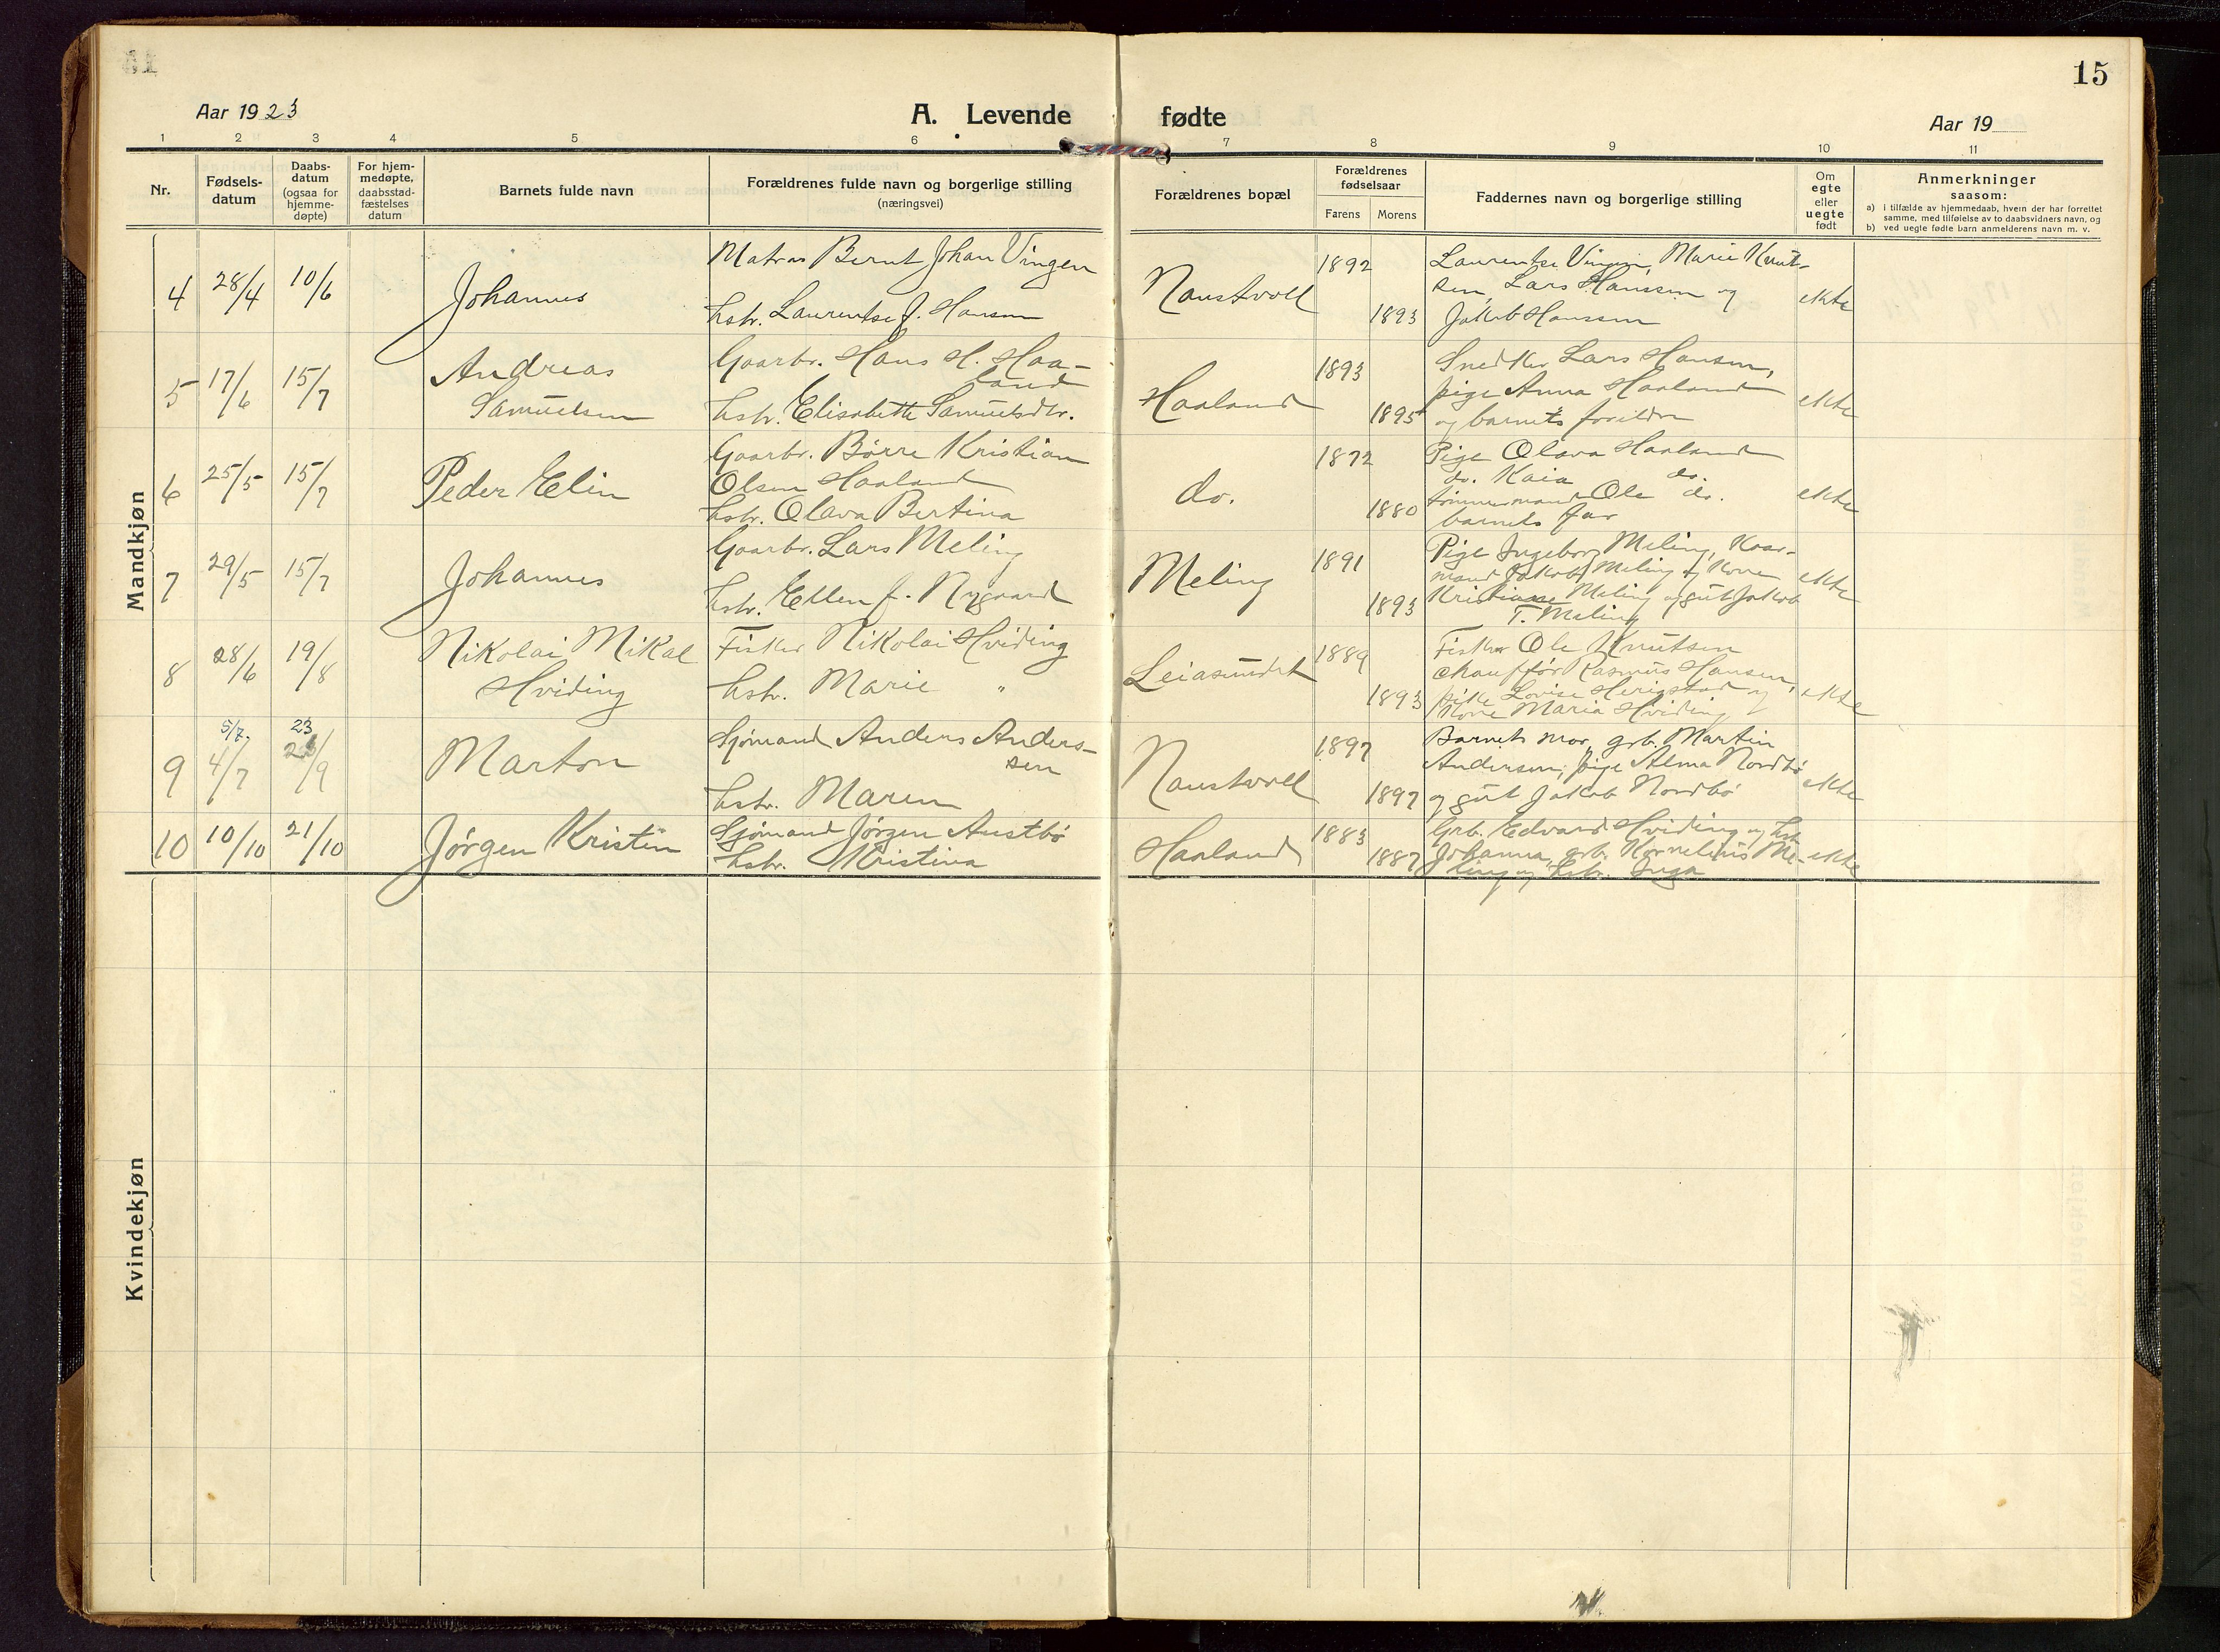 15
Aar 1923
A. Levende fødte
Aar 19
1 2 3 4 5 6 7 8 9 10 11
Nr.
Fødsels-
datum
Daabs-
datum
(ogsaa for
hjemme-
døpte)
For hjem-
medøpte,
daabsstad-
fæstelses
datum
Barnets fulde navn
Forældrenes fulde navn og borgerlige stilling
(næringsvei)
Forældrenes bopæl
Forældrenes
fødselsaar
Farens Morens
Faddernes navn og borgerlige stilling
Om
egte
eller
uegte
født
Anmerkninger
saasom:
a) i tilfælde av hjemmedaab, hvem der har forrettet
samme, med tilføielse av to daabsvidners navn, og
b) ved uegte fødte barn anmelderens navn m. v.
Mandkjøn
4 28/4 10/6 Johannes
Matros Bernt Johan Vingen
hstr. Laurentse f. Hansen
Naustvoll 1892 1893
Laurentse Vingen, Marie Knut-
sen, Lars Hanssen og
Jakob Hanssen
ekte
5 17/6 15/7 Andreas
Samuelsen
Gaarbr. Hans H. Haa-
land
hstr. Elisabette Samuelsdtr.
Haaland 1893 1895
Snedker Lars Hansen,
pige Anna Haaland
og barnets foreldre
ekte
6 25/5 15/7 Peder Elin
Gaarbr. Børre Kristian
Olsen Haaland
hstr. Olava Bertina
do. 1872 1880
Pige Olava Haaland
do. Kaia do.
tømmermand Ole do.
barnets far
ekte
7 29/5 15/7 Johannes
Gaarbr. Lars Meling
hstr. Ellen f. Nygaard
Meling 1891 1893
Pige Ingeborg Meling, Kaar-
mand Jakob Meling og Kone
Meling og gut Jakob
T. Meling
ekte
8 28/6 19/8 Nikolai Mikal
Hviding
Fisker Nikolai Hviding
hstr. Marie "
Leiasundet 1889 1893
Fisker Ole Knutsen
chauffør Rasmus Hansen,
pike Lovise Herigstad og
Kone Maria Hviding
ekte
5/7. 23
9 4/7 /9 Marton
Sjømand Anders Anders-
sen
hstr. Maren
Naustvoll 1897 1897
Barnets mor, grb. Martin
Andersen, pige Alma Nordbø
og gut Jakob Nordbø
ekte
10 10/10 21/10 Jørgen Kristin
Sjømand Jørgen Austbø
hstr. Kristina
Haaland 1883 1887
Grb. Edvard Hviding og hstr
Johanna, grb. Kornelius Me-
ling og hstr. Inga
ekte
Kvindekjøn